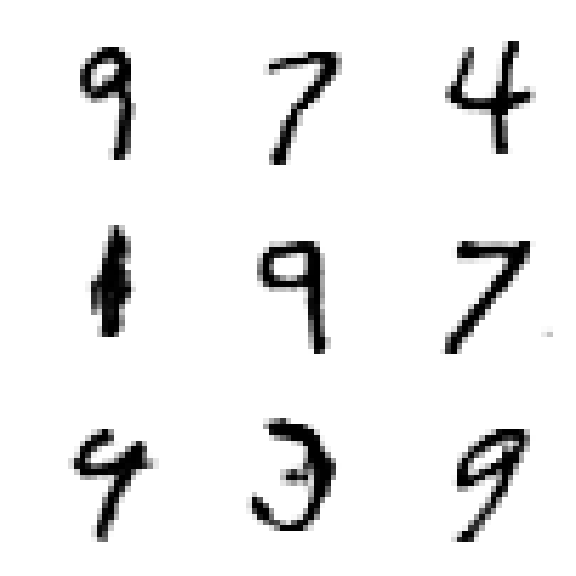 9 7 4
1 9 7
4 3 9